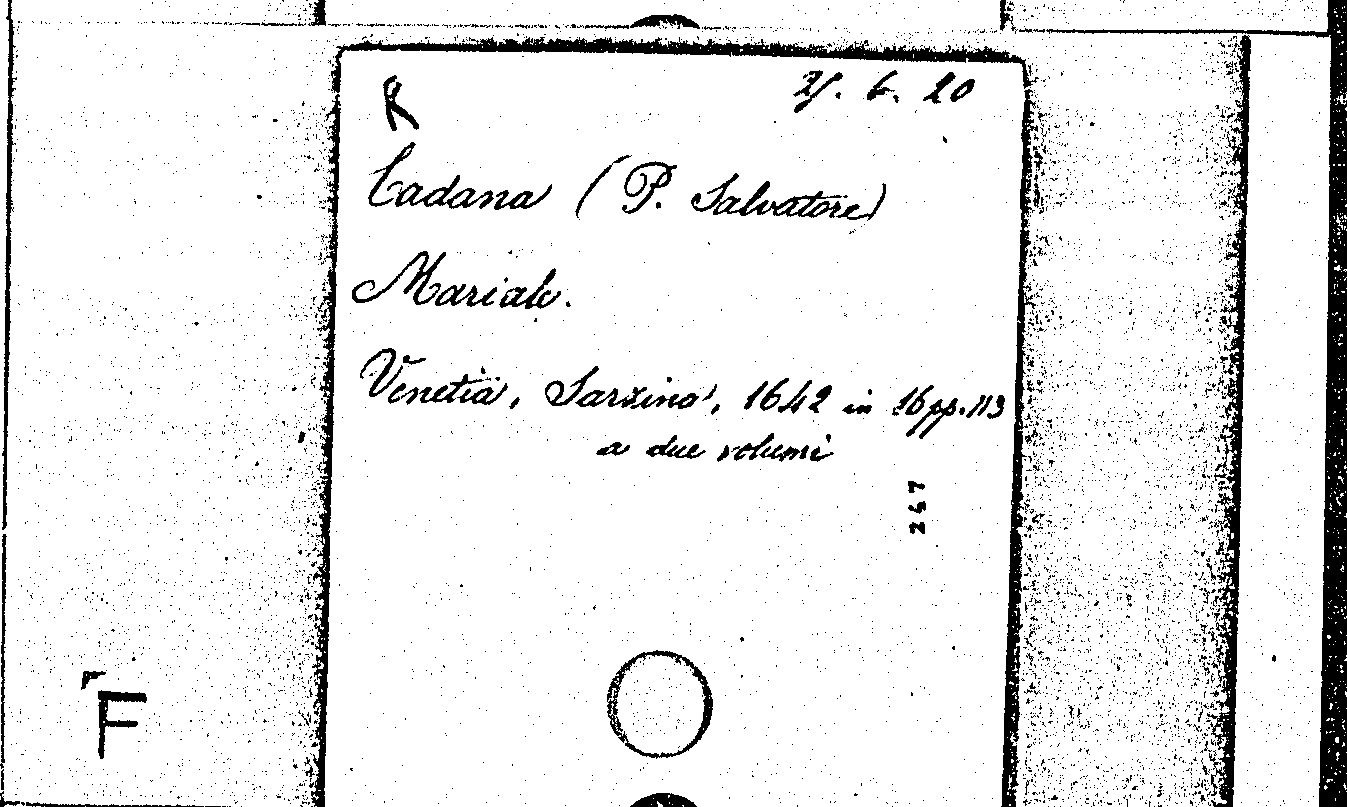 R
25. 6. 20
Cadana (P. Salvatore)
Mariale.
Venetia, Sarzina, 1642 in 16 pp. 113
a due volumi
247
F